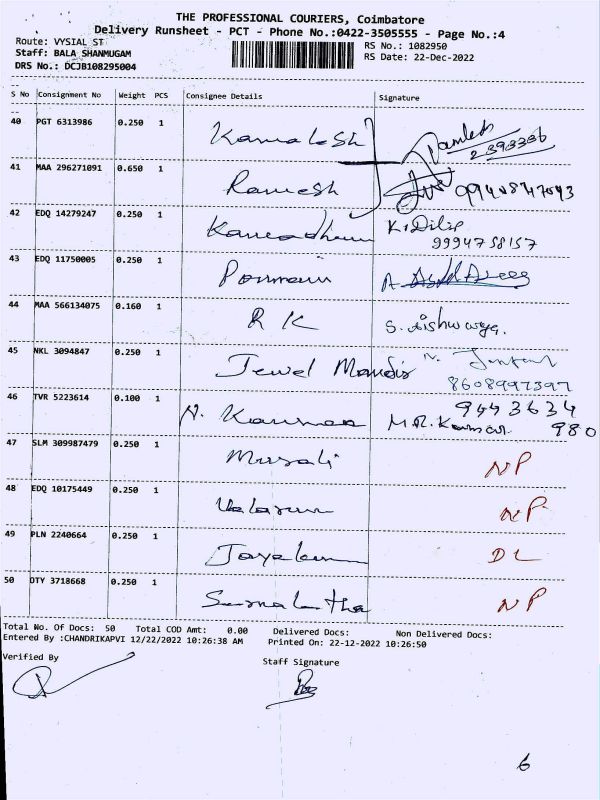 THE PROFESSIONAL COURIERS, Coimbatore
Delivery Runsheet - PCT - Phone No.:0422-3505555 - Page No.:4
Route: VYSIAL ST
Staff: BALA SHANMUGAM
DRS No.: DCJB108295004
RS No.: 1082950
RS Date: 22-Dec-2022
S No Consignment No Weight PCS Consignee Details Signature
40 PGT 6313986 0.250 1 Kamalesh Kamlesh
41 MAA 296271091 0.650 1 Ramesh
42 EDQ 14279247 0.250 1 K. Dilip
9994758157
43 EDQ 11750005 0.250 1
44 MAA 566134075 0.160 1 R K S. Aishwarya.
45 NKL 3094847 0.250 1 Jewel Mandir
8608997397
46 TVR 5223614 0.100 1 N. M.R. Kumar. 9443634
980
47 SLM 309987479 0.250 1 Murali NP
48 EDQ 10175449 0.250 1 NP
49 PLN 2240664 0.250 1 DL
50 OTY 3718668 0.250 1 NP
Total No. Of Docs: 50 Total COD Amt: 0.00 Delivered Docs: Non Delivered Docs:
Entered By :CHANDRIKAPVI 12/22/2022 10:26:38 AM Printed On: 22-12-2022 10:26:50
Verified By
Staff Signature
6